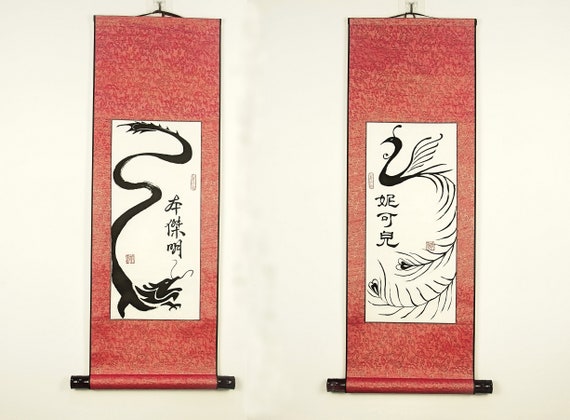 本傑明
妮可兒